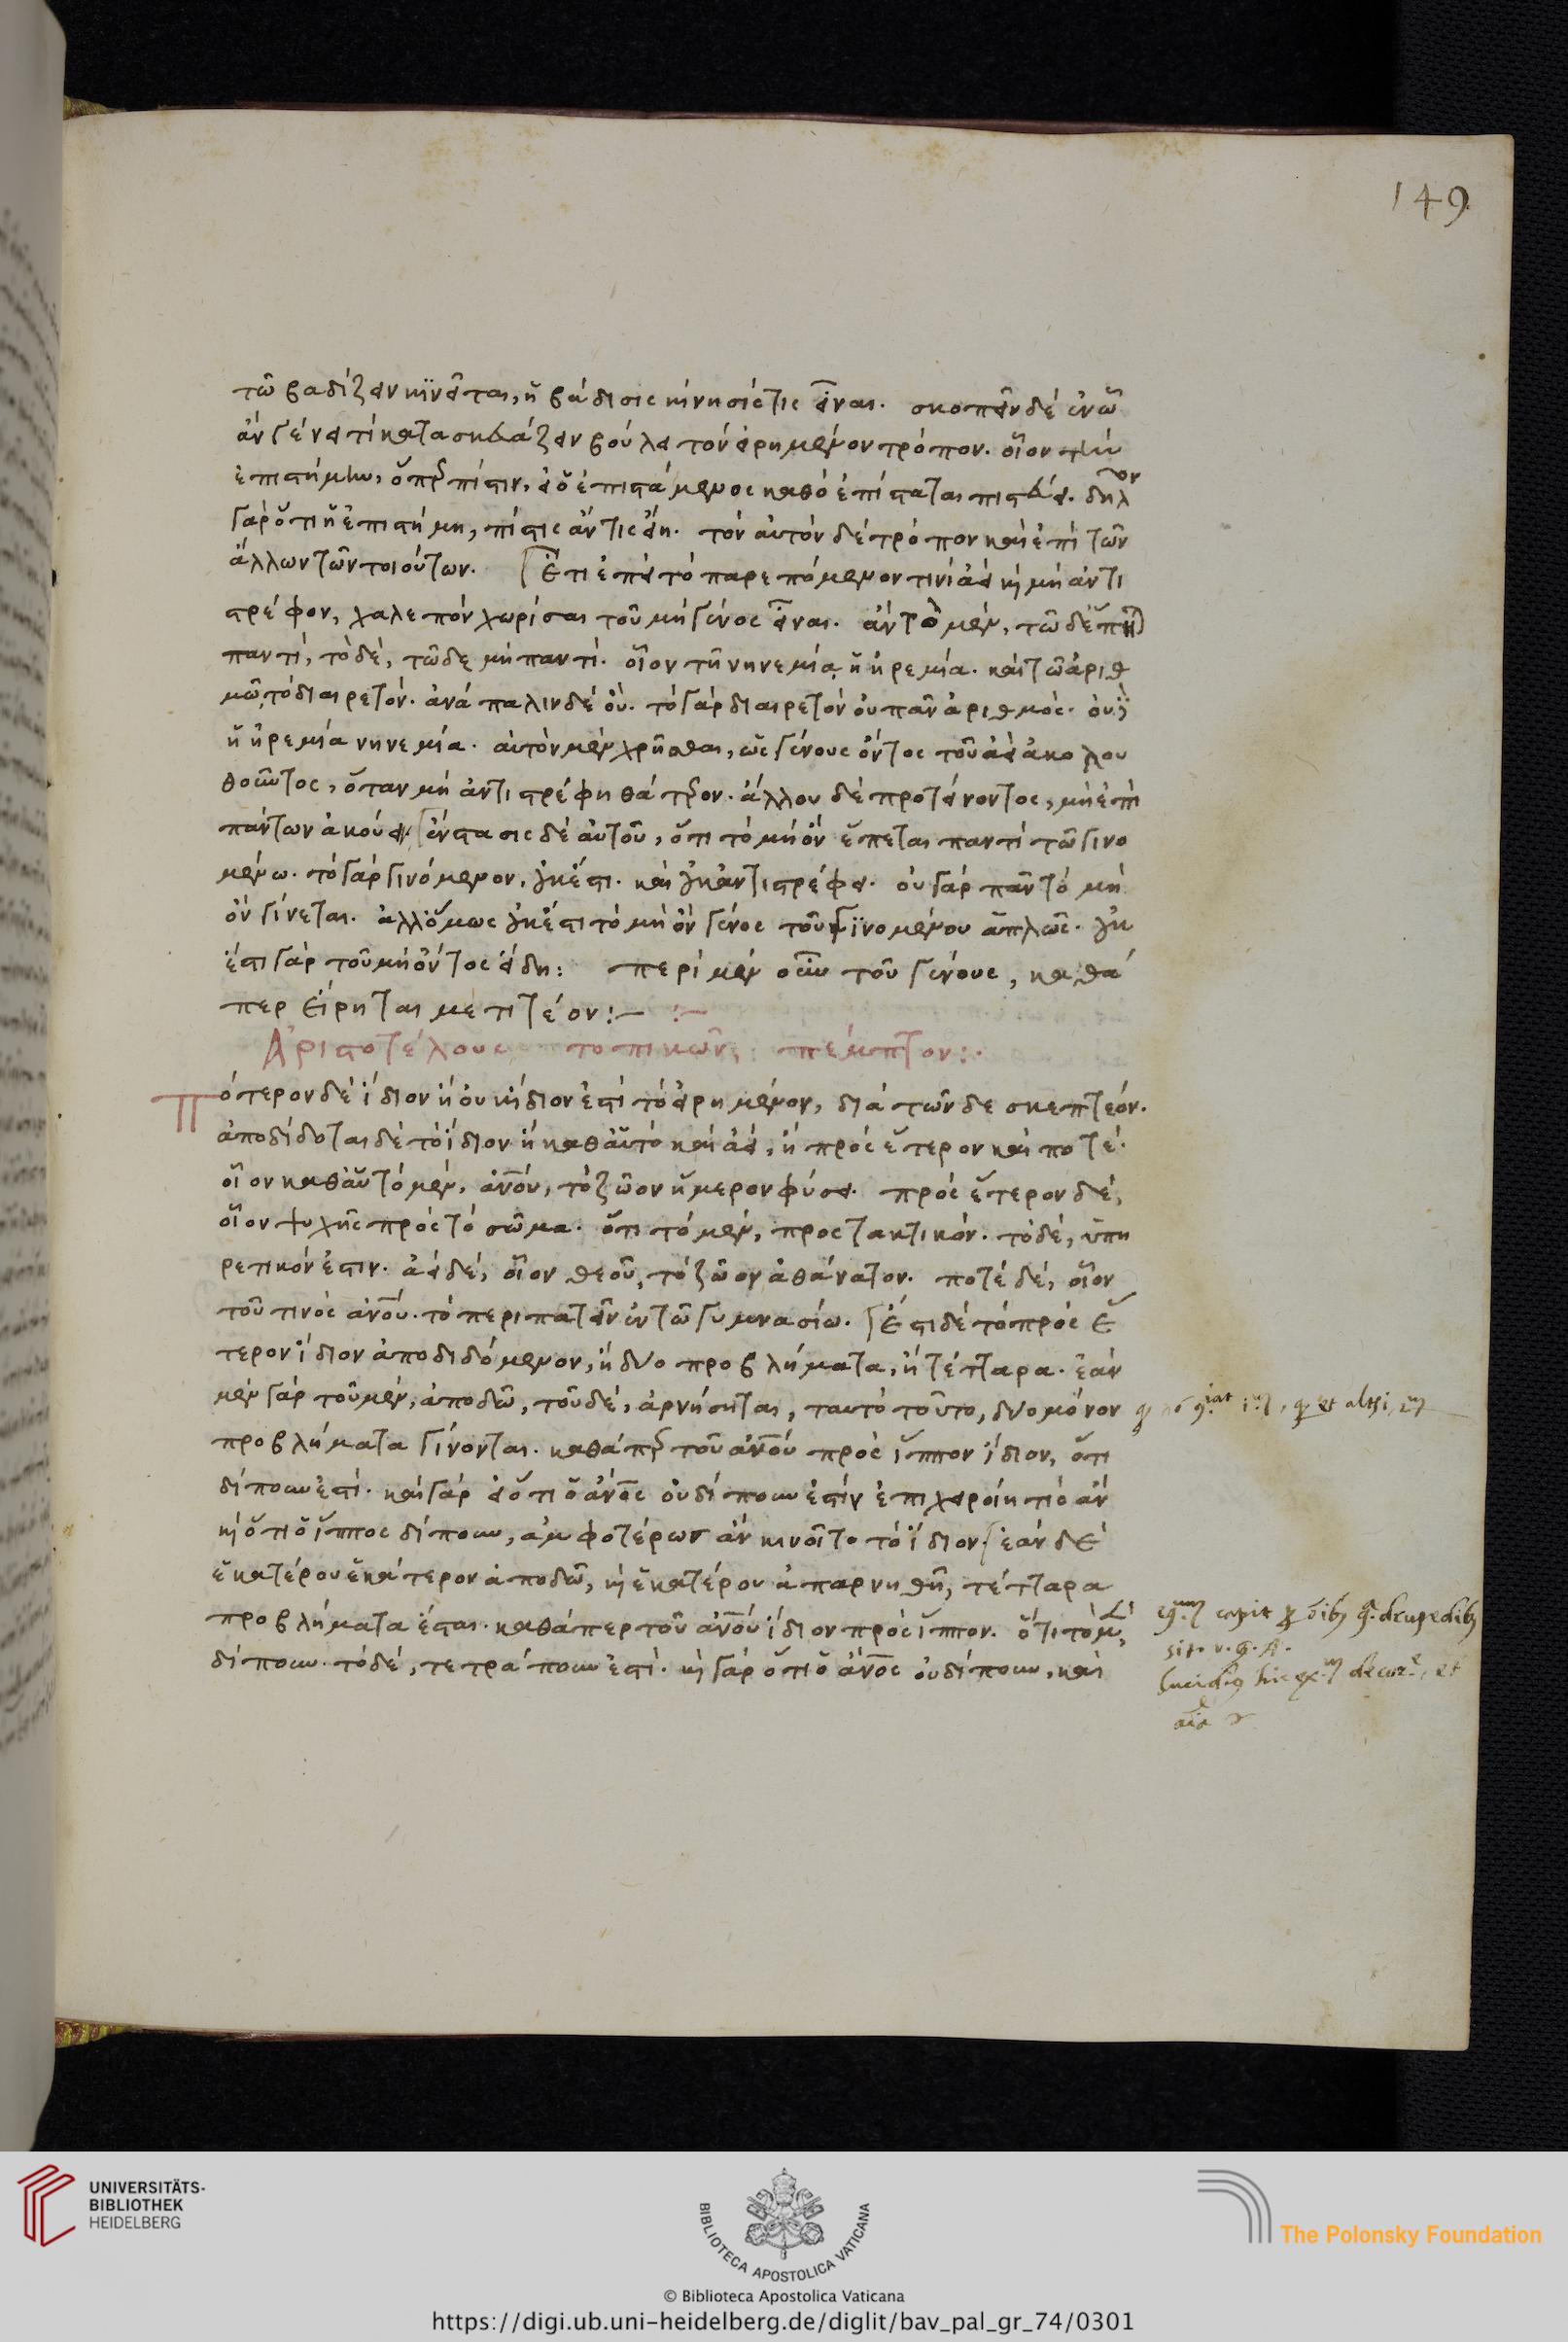 149
τῶ βαδίζειν κινεῖται, ἡ βάδισις κίνησίς τις εἶναι. σκοπεῖν δὲ ἐν ὧ
ἂν γένει τί κατασκευάζειν βούλει τὸν εἰρημένον τρόπον. οἷον τὴν
ἐπιστήμην, ὅπερ πίστιν, εἰ ὁ ἐπιστάμενος καθὸ ἐπίσταται πιστεύει. δῆλον
γὰρ ὅτι ἡ ἐπιστήμη, πίστις ἄν τις εἴη. τὸν αὐτὸν δὲ τρόπον καὶ ἐπὶ τῶν
ἄλλων τῶν τοιούτων. Ἔτι ἐπεὶ τὸ παρεπόμενον τινὶ ἀεὶ κὴ μὴ ἀντι
στρέφον, χαλεπὸν χωρίσαι τοῦ μὴ γένος εἶναι. ἂν τὸ μὲν, τῶ δὲ ἕπη
παντὶ, τὸ δὲ, τῶδε μὴ παντί. οἷον τῆ νηνεμία ἡ ἠρεμία. καὶ τῶ ἀριθ
μῶ, τὸ διαιρετόν. ἀνάπαλιν δὲ οὔ. τὸ γὰρ διαιρετὸν οὐ πᾶν ἀριθμός. οὐδ
ἡ ἠρεμία νηνεμία. αὐτὸν μὲν χρῆσθαι, ὡς γένους ὄντος τοῦ ἀεὶ ἀκολου
θοῦντος, ὅταν μὴ ἀντιστρέφη θάτερον. ἄλλου δὲ προτείνοντος, μὴ ἐπὶ
πάντων ἀκούειν ἔνστασις δὲ αὐτοῦ, ὅτι τὸ μὴ ὂν ἕπεται παντὶ τῶ γινο
μένω. τὸ γὰρ γινόμενον, οὐκ ἔστι. καὶ οὐκ ἀντιστρέφει. οὐ γὰρ πᾶν τὸ μὴ
ὂν γίνεται. ἀλλ' ὅμως οὐκ ἔστι τὸ μὴ ὂν γένος τοῦ γινομένου ἁπλῶς. οὐκ
ἔστι γὰρ τοῦ μὴ ὄντος εἴδη: περὶ μὲν οὖν τοῦ γένους, καθά
περ εἴρηται μετιτέον:—
Ἀριστοτέλους τοπικῶν, πέμπτον:.
Πότερον δὲ ἴδιον ἢ οὐκ ἴδιον ἐστὶ τὸ εἰρημένον, διὰ τῶν δε σκεπτεόν.
ἀποδίδοται δὲ τὸ ἴδιον ἢ καθ' αὑτὸ καὶ ἀεὶ, ἢ πρὸς ἕτερον καὶ ποτέ.
οἷον καθ' αὑτὸ μὲν, ἀνου, τὸ ζῶον ἥμερον φύσει. πρὸς ἕτερον δὲ,
οἷον ψυχῆς πρὸς τὸ σῶμα. ὅτι τὸ μὲν, προστακτικόν. τὸ δὲ, ὑπη
ρετικόν ἐστιν. ἀεὶ δὲ, οἷον θεοῦ, τὸ ζῶον ἀθάνατον. ποτὲ δὲ, οἷον
τοῦ τινὸς ἀνου. τὸ περιπατεῖν ἐν τῶ γυμνασίω. Ἔστι δὲ τὸ πρὸς ἕ
τερον ἴδιον ἀποδιδόμενον, ἢ δύο προβλήματα, ἢ τέτταρα. ἐὰν
μὲν γὰρ τοῦ μὲν, ἀποδῶ, τοῦ δὲ, ἀρνήσηται, ταυτὸ τοῦτο, δύο μόνον
προβλήματα γίνονται. καθάπερ τοῦ ἀνου πρὸς ἵππον ἴδιον, ὅτι
δίπουν ἐστί. καὶ γὰρ εἰ ὅτι ὁ ἀνος οὐ δίπουν ἐστὶν ἐπιχειροίη τὶς ἂν
κὴ ὅτι ὁ ἵππος δίπουν, ἀμφοτέρως ἂν κινοῖτο τὸ ἴδιον. ἐὰν δὲ
ἑκατέρου ἑκάτερον ἀποδῶ, κὴ ἑκατέρου ἀπαρνηθῆ, τέτταρα
προβλήματα ἔσται. καθάπερ τοῦ ἀνου ἴδιον πρὸς ἵππον. ὅτι τὸ μὲν,
δίπουν. τὸ δὲ, τετράπουν ἐστί. κὴ γὰρ ὅτι ὁ ἀνος οὐ δίπουν, καὶ
UNIVERSITÄTS-
BIBLIOTHEK
HEIDELBERG
BIBLIOTECA APOSTOLICA VATICANA
The Polonsky Foundation
© Biblioteca Apostolica Vaticana
https://digi.ub.uni-heidelberg.de/diglit/bav_pal_gr_74/0301